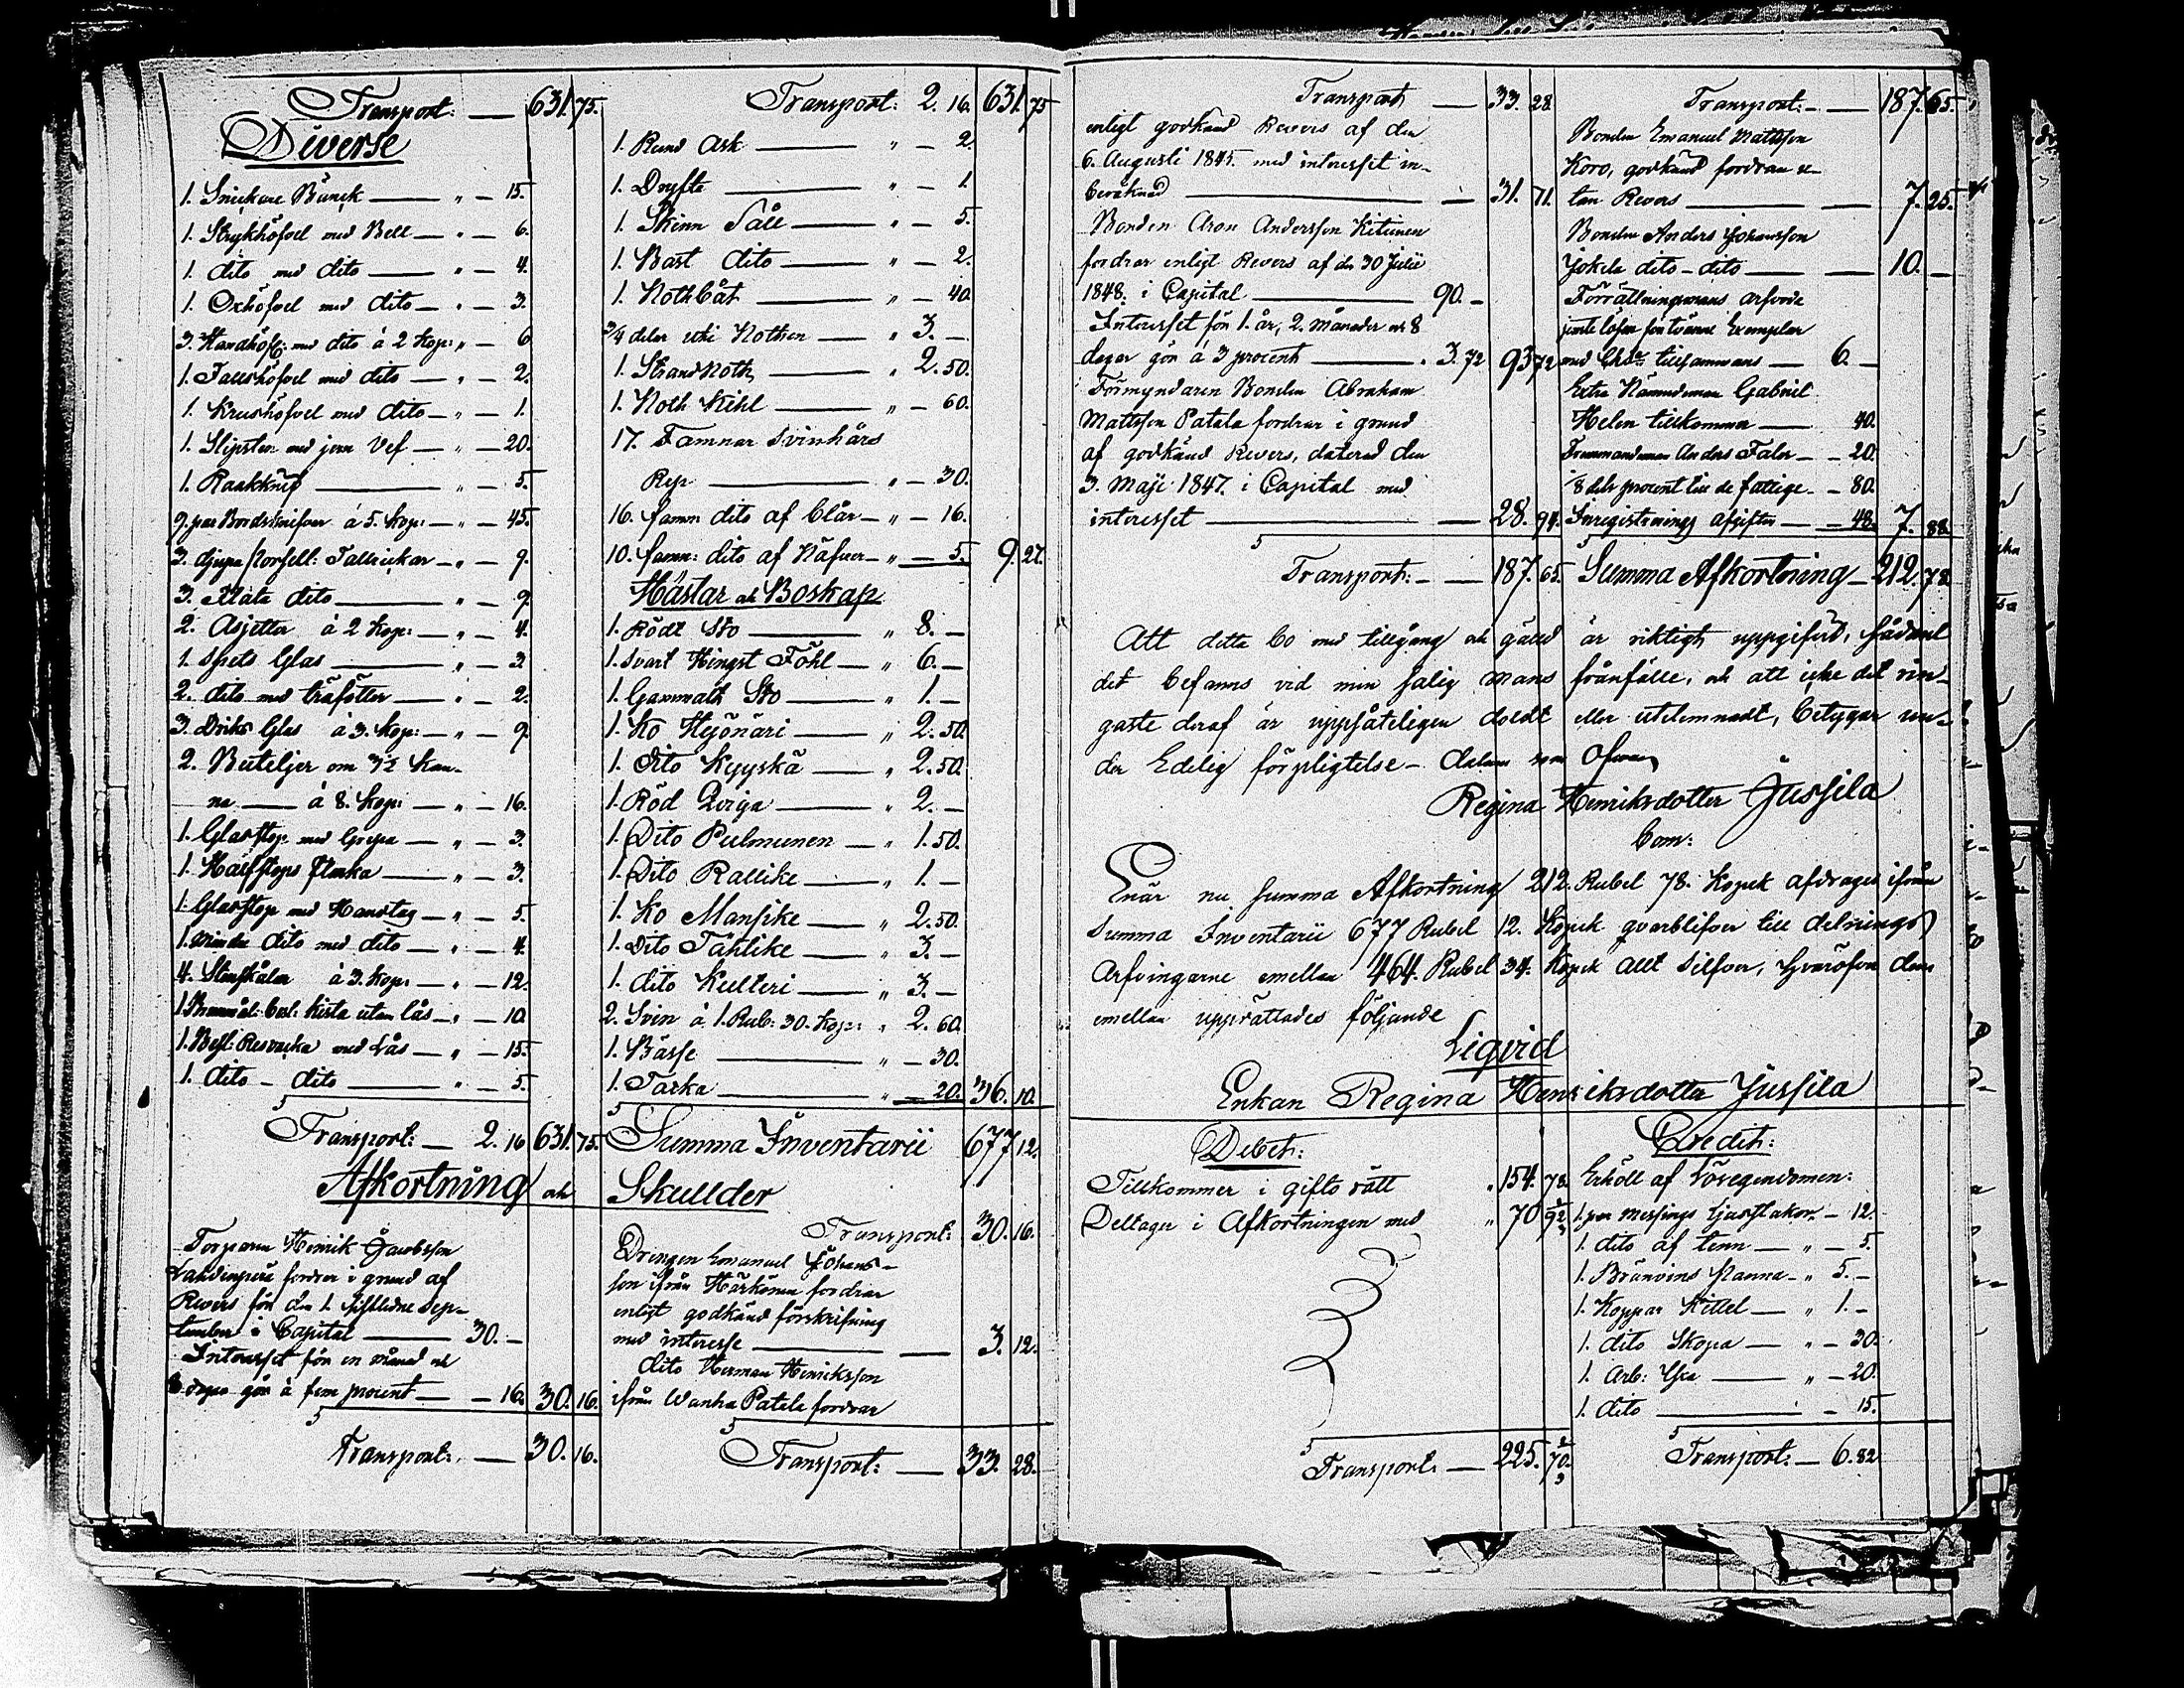 Transport: — 631. 75.
Diverse
1. Snickare Bänck — " — 15.
1. Strykhöfvel med Bett — " — 6.
1. dito med dito — " — 4.
1. Oxhöfvel med dito — " — 3.
3. Handhöfl: med dito à 2 Kop: " — 6
1. Falthöfvel med dito — " — 2.
1. Krushöfvel med dito — " — 1.
1. Slipsten med jern Vef — " — 20.
1. Raakknif — " — 5.
9. par Bordsknifvar à 5. Kop: — " — 45.
3. djupa Porsell: Tallrickar — " — 9.
3. flata dito — " — 9
2. Asjetter à 2 Kop: — " — 4.
1. Spets Glas — " — 3
2. dito med träfötter — " — 2.
3. Dricks Glas à 3. Kop: — " — 9
2. Buteljer om 3/2 Kan-
na — à 8. Kop: — " — 16.
1. Glasstop med Gripa — " — 3.
1. Halfstops flaska — " — 3.
1. Glasstop med Handtag — " — 5.
1. Mindre dito med dito — " — 4.
4. Stenskålar à 3. Kop: — " — 12.
1. Brunmål: besl: Kista utan lås — " — 10.
1. Besl: Resvacka med Lås — " — 15.
1. dito - dito — " — 5.
Transport: — 2. 16 631. 75.
Transport: 2. 16. 631. 75
1. Rund Ask — " — 2.
1. Dryfta — " — 1.
1. Skinn Såll — " — 5.
1. Bast dito — " — 2.
1. Nothbåt — " — 40
3/4 delar uti Nothen — " 3. —
1. Strand Noth — " 2. 50.
1. Noth Kihl — " — 60.
17. Famnar Svinhårs
Rep — " — 30.
16. famn dito af blår — " — 16.
10. famn: dito af Näfver — " — 5. 9. 27.
Hästar och Boskap
1. Rödt Sto — " 8. —
1. Svart Hingst Föhl — " 6. —
1. Gammalt Sto — " 1. —
1. Ko Hejönäri — " 2. 50.
1. dito Kyyskä — " 2. 50.
1. Röd Qviga — " 2. —
1. Dito Pulmunen — " 1. 50.
1. Dito Rallike — " 1. —
1. Ko Mansike — " 2. 50.
1. Dito Tähtike — " 3. —
1. dito Kulteri — " 3. —
2. Svin à 1. Rub: 30. Kop: " 2. 60.
1. Basse — " — 30.
1. Tacka — " — 20. 36. 10.
Summa Inventarii 677 12.
Afkortning och Skullder
Torparen Henrik Jacobsson
fordrar i grund af
Revers från den 1. sistledne Sep-
tember i Capital — 30. —
Intresset för en månad och
dagar gör à fem procent — — 16. 30. 16.
Transport: — 30. 16.
Transport: 30. 16.
Drengen Emanuel Johans-
son ifrån Härkönen fordrar
enligt godkänd förskrifning
med interesse — 3. 12.
dito Herman Henriksson
ifrån Wanha Patala fordrar
Transport: — 33. 28.
Transport — 33. 28.
enligt godkänd Revers af den
6. Augusti 1845. med intresset in-
beräknad — 31. 71.
Bonden Aron Andersson Kitunen
fordrar enligt Revers af den 30 Julii
1848. i Capital — 90. —
Intresset för 1. år, 2. månader och 8
dagar gör à 3 procent — . 3. 72 93 72
Förmyndaren Bonden Abraham
Mattsson Patala fordrar i grund
af godkänd Revers, daterad den
3. Maji 1847. i Capital med
intresset — 28. 94.
Transport: — 187. 65.
Transport: — 187. 65.
Bonden Emanuel Mattsson
Koro, godkänd fordran u-
tan Revers — 7. 25.
Bonden Anders Johansson
Jokela dito - dito — 10. —
Förrättningsmans arfvode
jemte lösen för tvänne Exemplar
med tillsammans — 6. —
Extra Nämndeman Gabriel
Helen tillkommer — 40.
Anders Faler — — 20.
1/8 dels procent till de fattige — — 80.
Inregistrerings afgiften — — 48. 7. 88.
Summa Afkortning — 212. 78.
Att detta bo med tillgång och gäld är riktigt uppgifvid, sådant
det befanns vid min salig mans frånfälle, och att icke det rin-
gaste deraf är uppsåteligen doldt eller utelemnadt, betygar un-
der Edelig förpligtelse — datum som Ofvan
Regina Henriksdotter Jussila
bom:
Enär nu Summa Afkortning 212. Rubel 78. Kopek afdrages ifrån
Summa Inventarii 677 Rubel 12. Kopek qvarblifver till delnings
Arfvingarne emellan 464. Rubel 34. Kopek allt Silfver, hvaröfver dem
emellan upprättades följande
Liqvid
Enkan Regina Henriksdotter Jussila
Debet:
Tillkommer i gifto rätt " 154. 78.
Deltager i Afkortningen med " 70 92 2/3
Transport: — 225. 70. 2/3
Credit:
Erhöll af Lösegendomen:
1. par messings Ljusstakar — — 12.
1. dito af tenn — " — 5.
1. Bränvins Panna — " 5. —
1. Koppar Kittel — " 1. —
1. dito Skopa — " — 30.
1. Arb: Yxa — " — 20.
1. dito — — 15.
Transport: — 6. 82